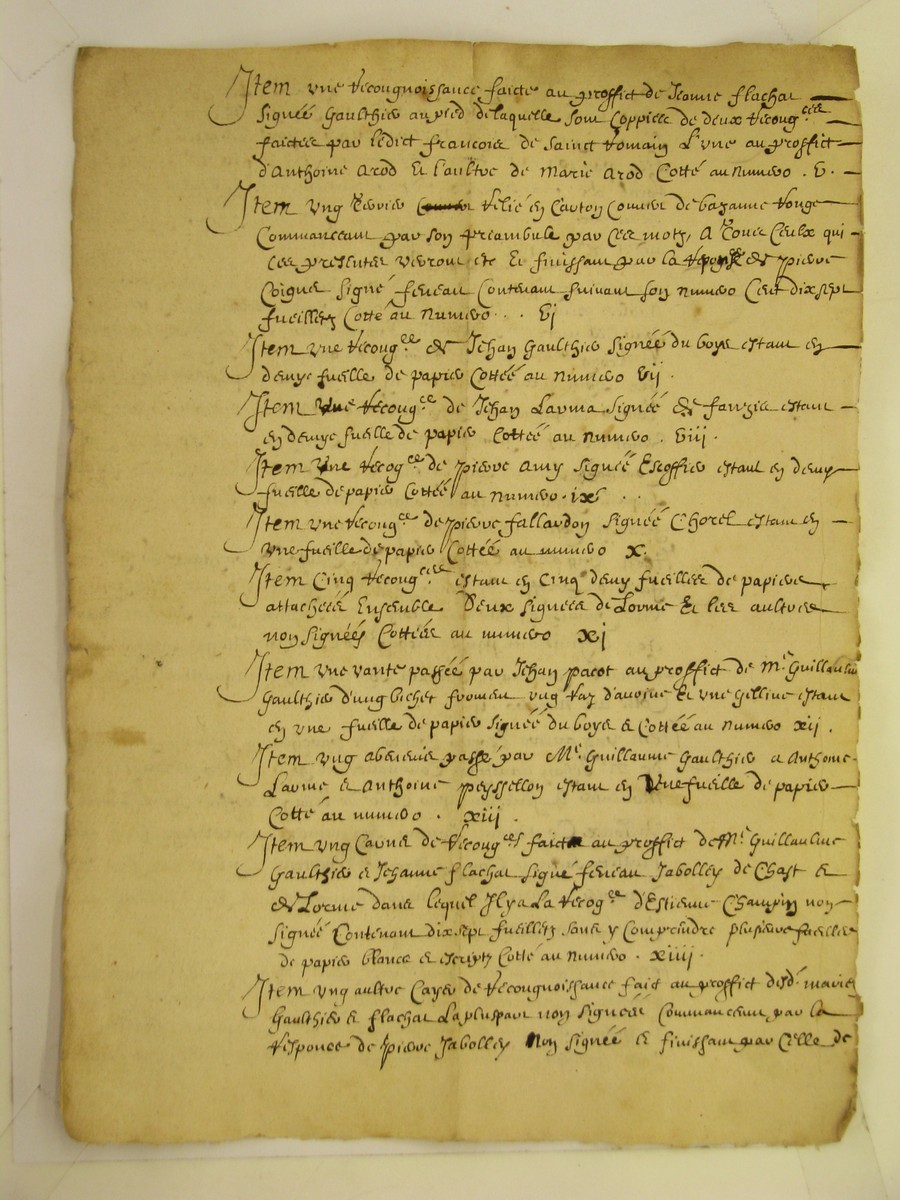 Item une recougnoissance faicte au proffict de Jeanne flachat
signéé Gaulthier au pied de laquelle sont coppiees de deux recougces
faictes par ledict francois de sainct Romain L'une au proffict
d'Anthoine Arod Et l'aultre de Marie Arod Cotté au numero . v .
Item ung Terrier relié en Carton Couvert de bazanne Rouge
Commanceant par son préambule par ces motz, A Tous Ceulx qui
ces presentes verront etc Et finissant par la response de pierre
Coignet signé feneau Contenant suivant son numero Cent dix sept
fueilletz Cotté au numero . . vi
Item une recougce de Jehan Gaulthier signéé du boys estant en
demye fueille de papier Cottéé au numero vii .
Item une recougce de Jehan Lorma signéé de estant
en demye fueille de papier Cottéé au numero . viii .
Item une recogce de pierre Amy signéé Escoffier estant en demy
fueille de papier Cottéé au numero . ix . .
Item une recougce de pierre fallaudon signéé Chorel estant en
une fueille de papier Cottéé au numero x .
Item Cinq recougces estant en Cinq demy fueilles de papier
attachéés Ensemble Deux signéés de Lorme Et les aultres
non signéés Cottéés au numero xi
Item une vante passéé par Jehan pacot au proffict de Mr Guillaulme
Gaulthier d'ung bichet froment ung raz d'avoine Et une gelline estant
en une fueille de papier signéé du boys & Cottéé au numero xii .
Item ung abenevis passé par Mr Guillaume Gaulthier a Anthoine
Lorme & Anthoine peyssellon estant en une fueille de papier
Cotté au numero . xiii .
Item ung Cayer de recouges faict au proffict de Mr Guillaulme
Gaulthier & Jehanne flachat signé feneau Jabolley de Chast &
de Lorme dans lequel Il y a La recogce d'Estienne Champin non
signéé Contenant dix sept fueilletz sans y Comprendre plusieurs fueilles
de papier blancs & escriptz Cotté au numero . xiiii .
Item ung aultre Cayer de recougnoissance faict au proffict desd. mariez
Gaulthier & flachat La pluspart non signéés Commanceant par la
responce de pierre Jabolley non signéé & finissant par Celle de